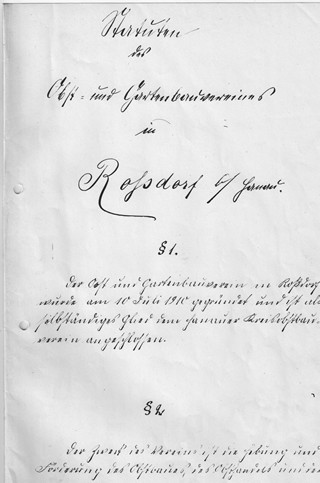 Statuten
des
Obst- und Gartenbauvereines
in
Roßdorf b/ Hanau.
§ 1.
Der Obst und Gartenbauverein in Roßdorf
wurde am 10 Juli 1910 gegründet und ist als
selbständiges Glied dem Hanauer Kreisobstbau-
verein angeschlossen.
§ 2
Der Zweck des Vereins ist die Hebung und
Förderung des Obstbaues, des Obsthandels und